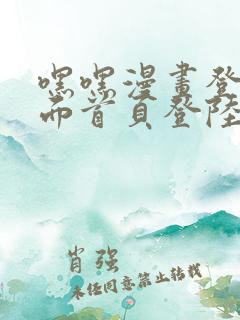 嘿嘿漫畫登
而首頁登陸
肖强
未经同意禁止转载